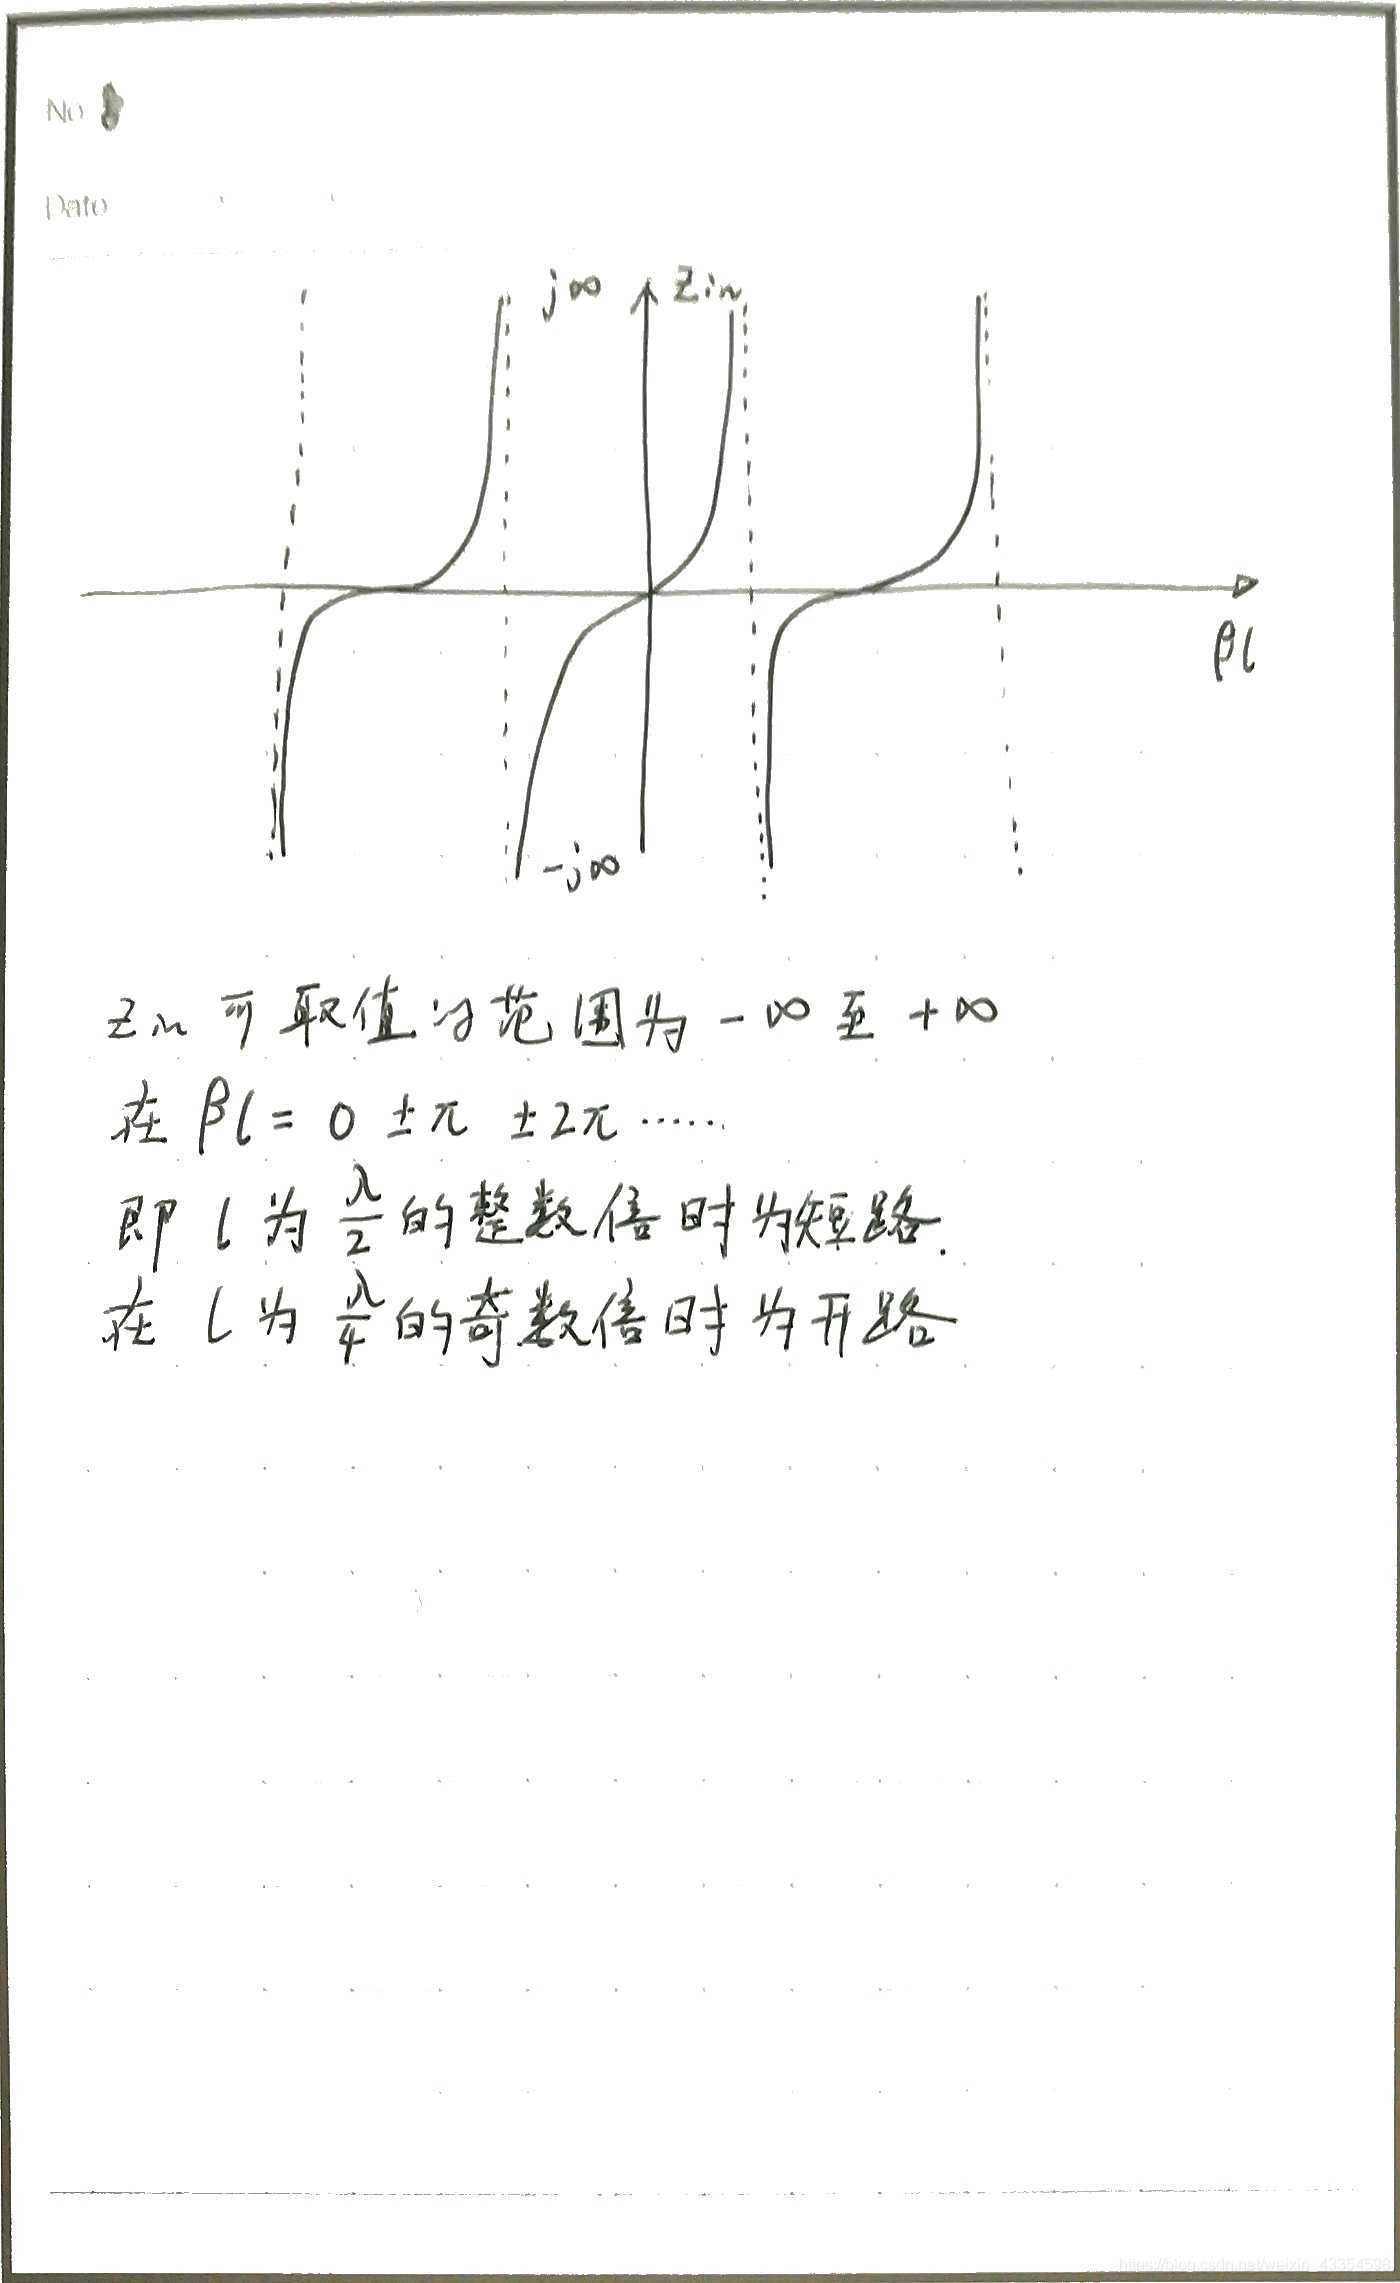 No
Date
j∞ Zin
βl
-j∞
Zin 可取值的范围为 -∞ 至 +∞
在 βl = 0 ±π ±2π ······
即 l 为 λ/2 的整数倍时为短路.
在 l 为 λ/4 的奇数倍时为开路
https://blog.csdn.net/weixin_43354598